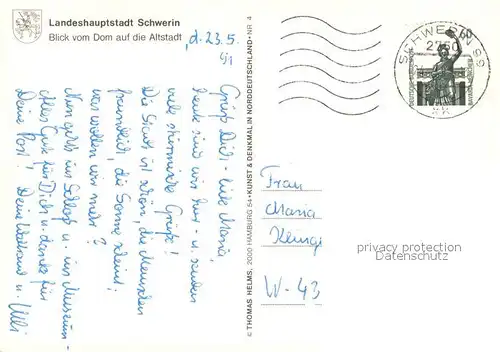 Landeshauptstadt Schwerin
Blick vom Dom auf die Altstadt
d. 23.5.
91
Grüß Dich - liebe Maria,
heute sind wir hier - u. senden
viele stürmische Grüße!
Die Stadt ist schön, die Menschen
freundlich, die Sonne scheint,
was wollen wir mehr?
Nun geht's ins Schloß u. ins Museum -
Alles Gute für Dich u. danke für
Deine Post! Deine u. Uli
© THOMAS HELMS, 2000 HAMBURG 54 • KUNST & DENKMAL IN NORDDEUTSCHLAND • NR. 4
SCHWERIN 99
2760
60
DEUTSCHE BUNDESPOST
Frau
Maria
W-43
privacy protection
Datenschutz